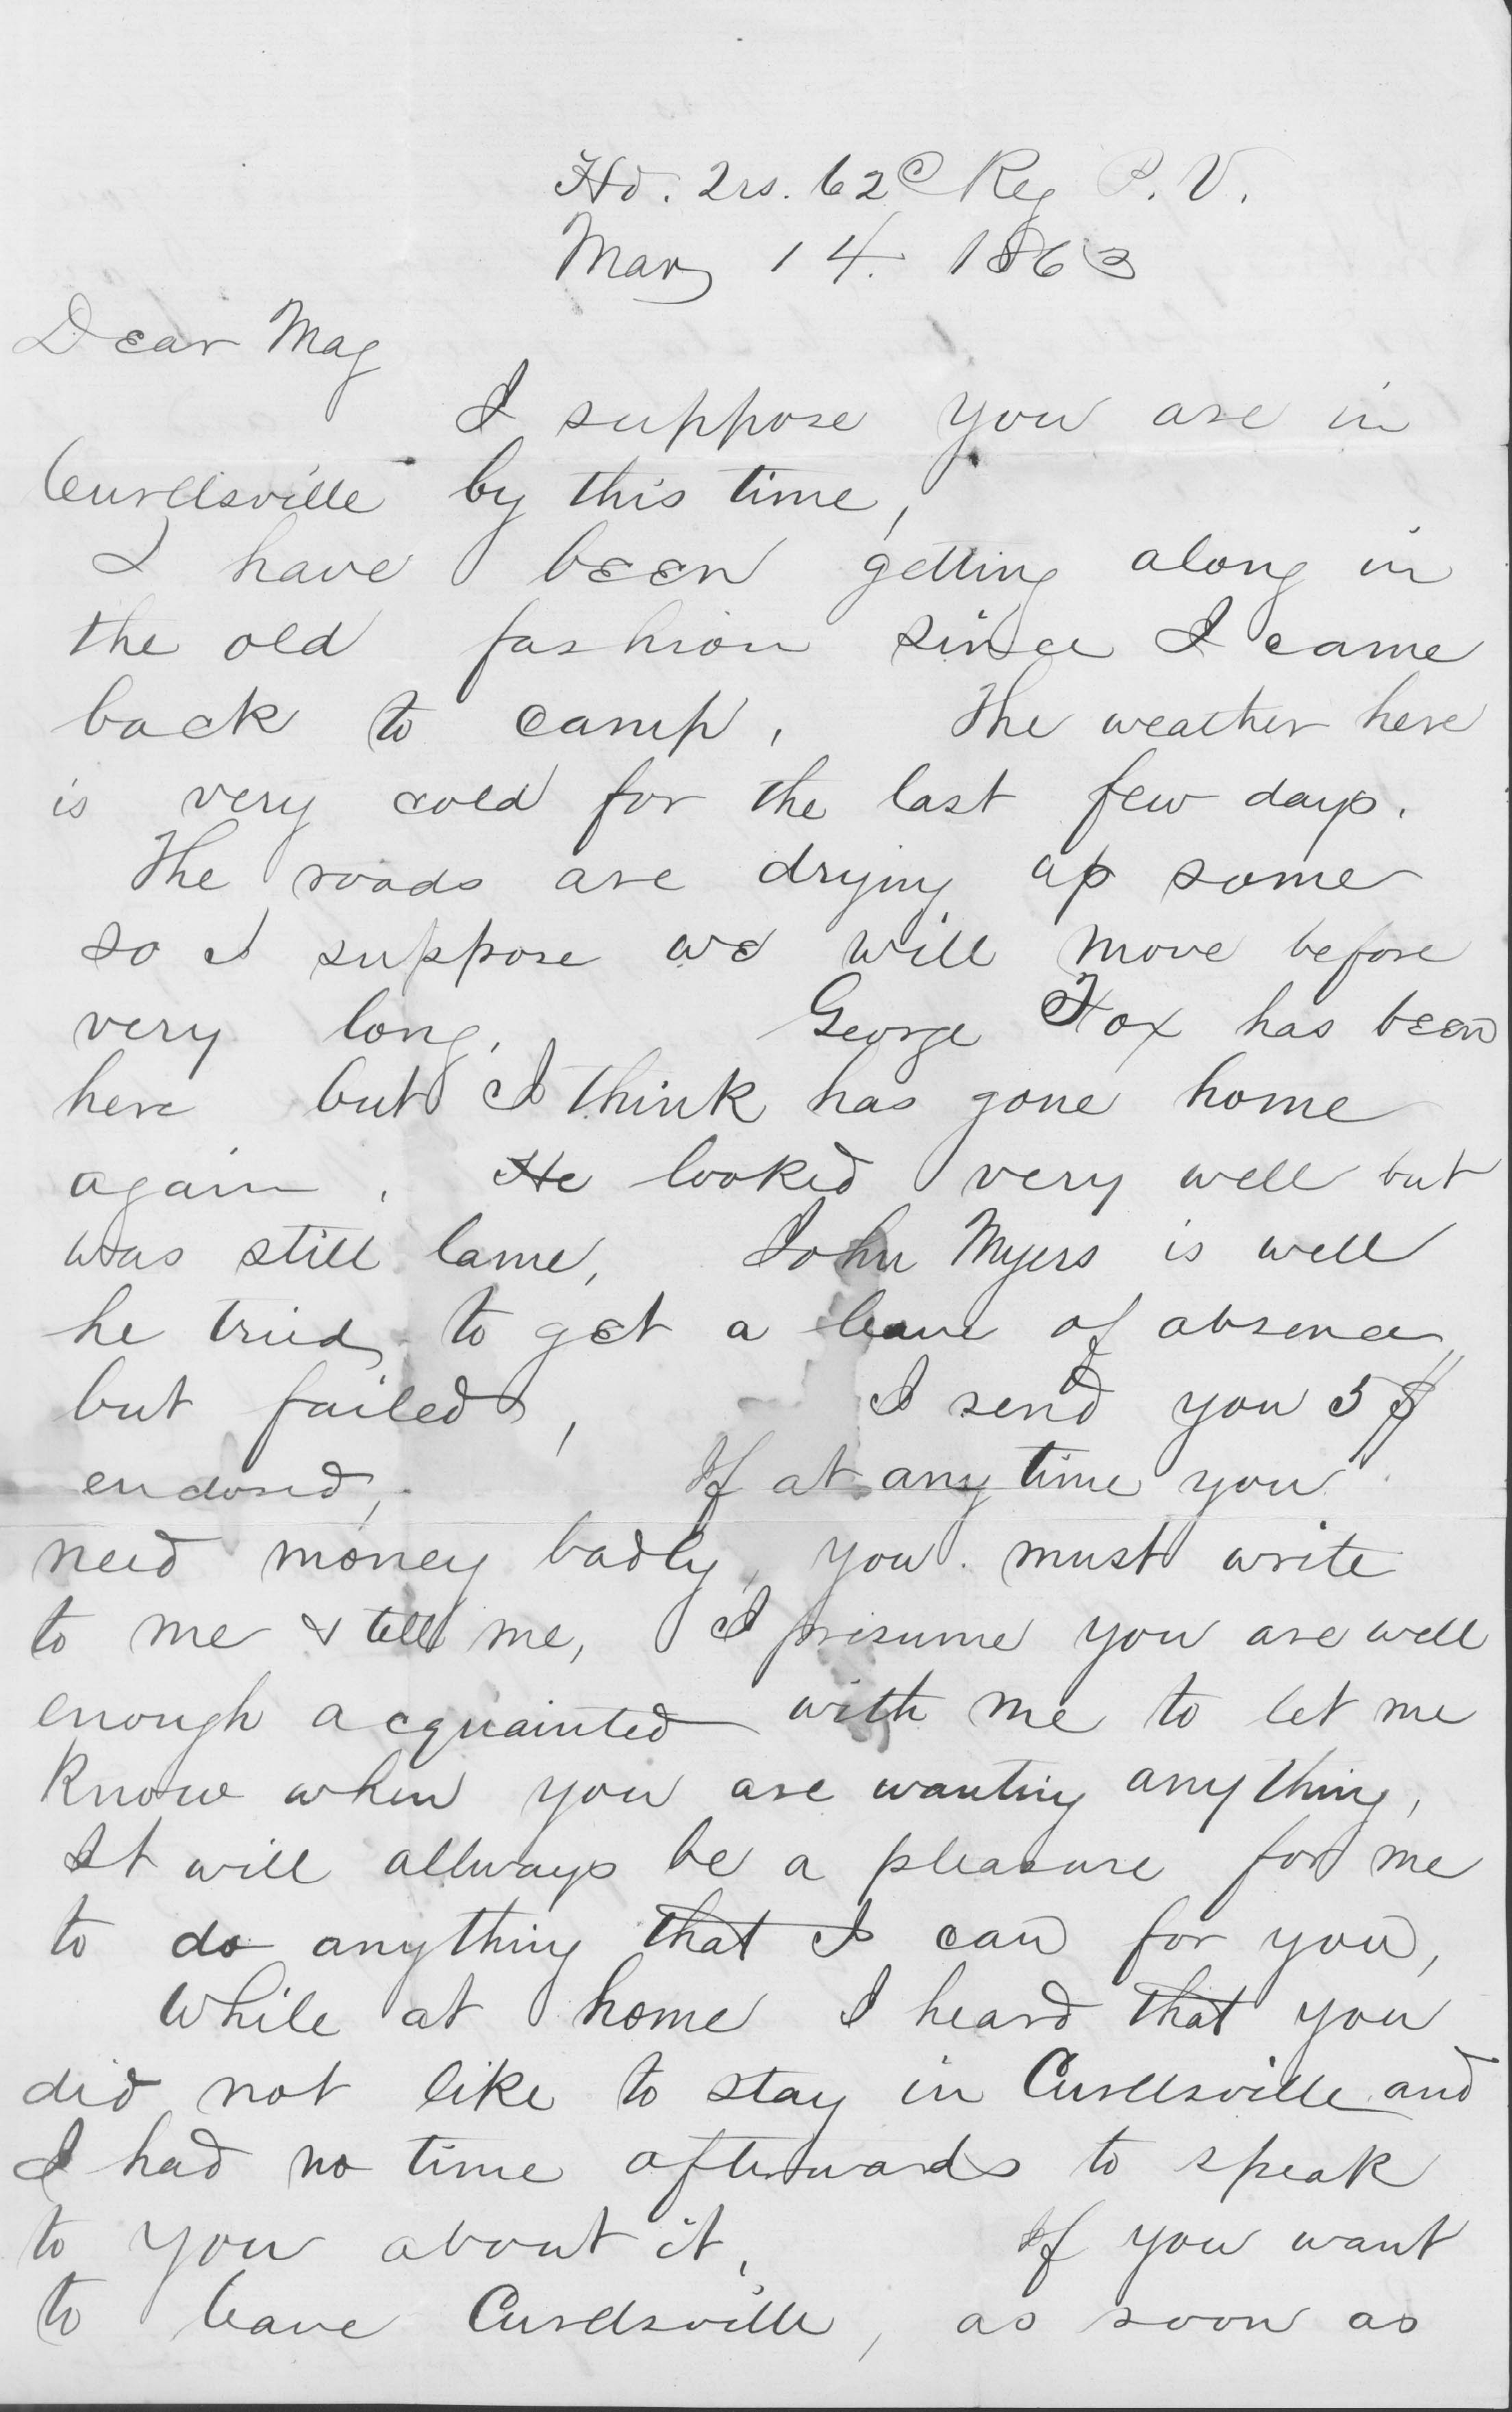 Hd. Qrs. 62d Reg P. V.
Mar 14. 1863
Dear Mag
I suppose you are in
Curllsville by this time,
I have been getting along in
the old fashion since I came
back to camp. The weather here
is very cold for the last few days.
The roads are drying up some
so I suppose we will move before
very long. George Fox has been
here but I think has gone home
again. He looked very well but
was still lame, John Myers is well
he tried to get a leave of absence
but failed, I send you 5$
enclosed, If at any time you
need money badly, you must write
to me & tell me, I presume you are well
enough acquainted with me to let me
know when you are wanting anything,
It will allways be a pleasure for me
to do anything that I can for you,
While at home I heard that you
did not like to stay in Curllsville and
I had no time afterwards to speak
to you about it, If you want
to leave Curllsville, as soon as